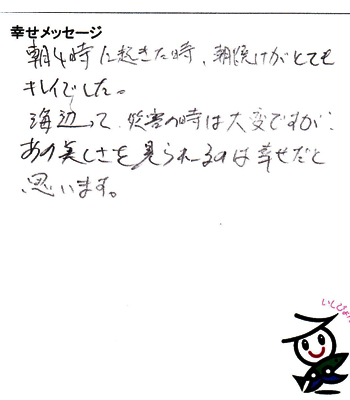 幸せメッセージ
朝4時に起きた時、朝焼けがとても
キレイでした。
海辺って、災害の時は大変ですが、
あの美しさを見られるのは幸せだと
思います。